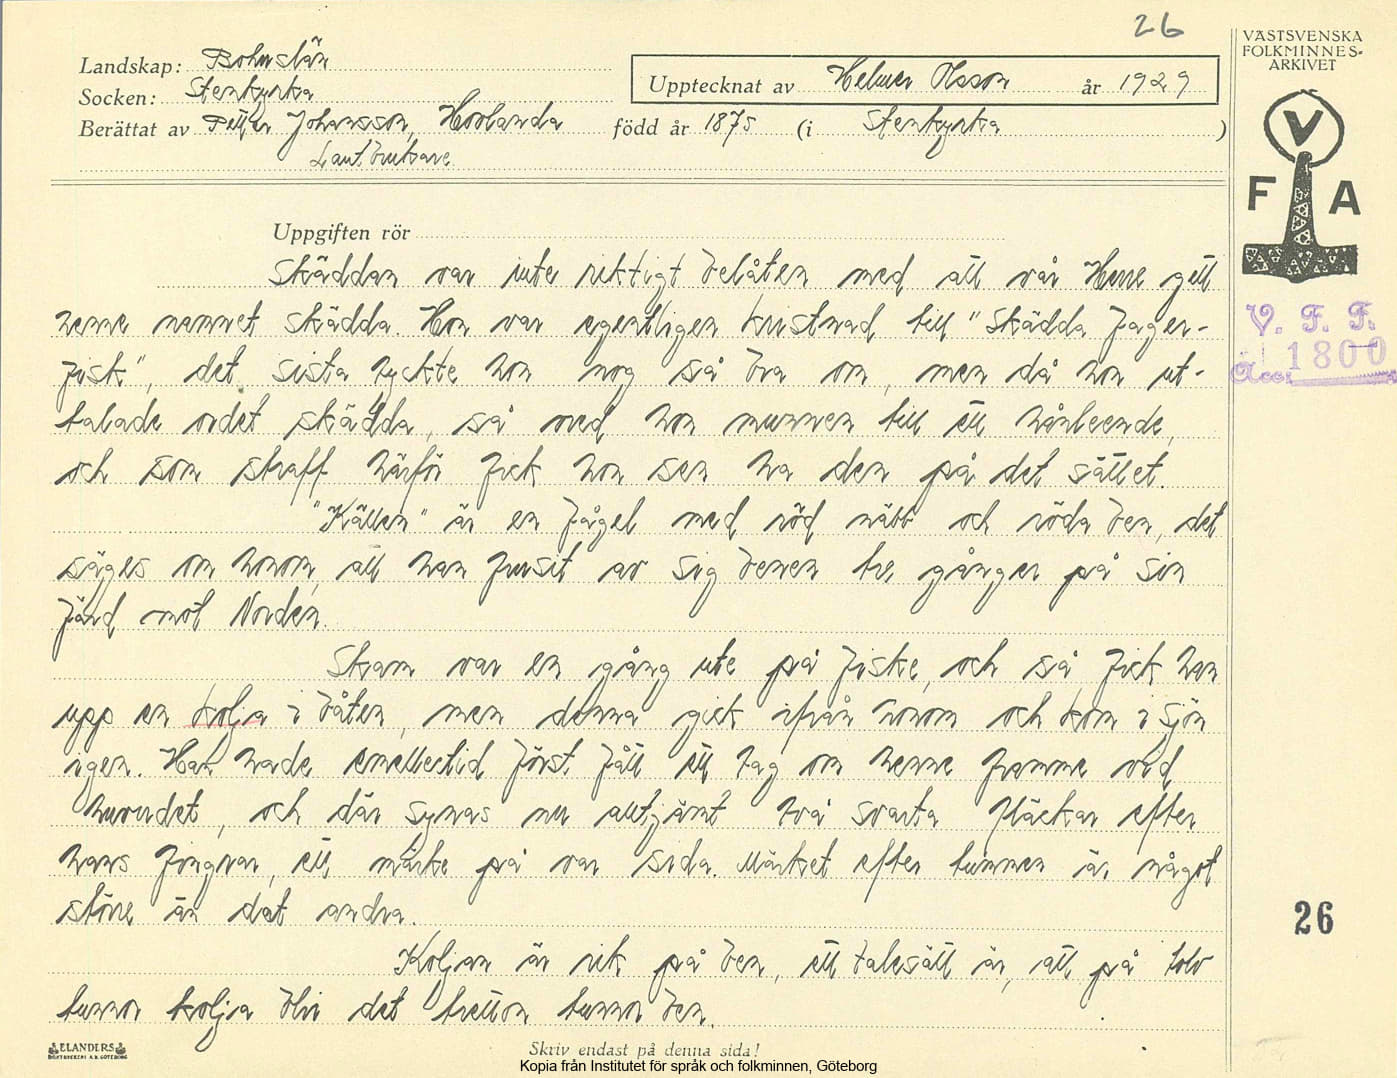 26
VÄSTSVENSKA
FOLKMINNES-
ARKIVET
Landskap: Bohuslän
Upptecknat av Helmer Olsson år 1929
Socken: Stenkyrka
Berättat av Petter Johansson, Hovlanda född år 1875 (i Stenkyrka )
Lantbrukare
V
F A
Uppgiften rör
Skäddan var inte riktigt belåten med att vår Herre gett
henne namnet skädda. Hon var egentligen kristnad till "Skädda Fager-
fisk", det sista tyckte hon nog så bra om, men då hon ut-
talade ordet skädda, så vred hon munnen till ett hånleende,
och som straff härför fick hon sen ha den på det sättet.
"Källen" är en fågel med röd näbb och röda ben, det
säges om honom, att han frusit av sig benen tre gånger på sin
färd mot Norden.
Skam var en gång ute på fiske, och så fick han
upp en kolja i båten, men denna gick ifrån honom och kom i sjön
igen. Han hade emellertid först fått ett tag om henne framme vid
huvudet, och där synas nu alltjämt två svarta fläckar efter
hans fingrar, ett märke på var sida. Märket efter tummen är något
större än det andra.
Koljan är rik på ben, ett talesätt är, att på tolv
tunnor kolja blir det tretton tunnor ben.
V. F. F.
Acc: 1800
26
ELANDERS
BOKTRYCKERI A.B. GÖTEBORG
Skriv endast på denna sida!
Kopia från Institutet för språk och folkminnen, Göteborg